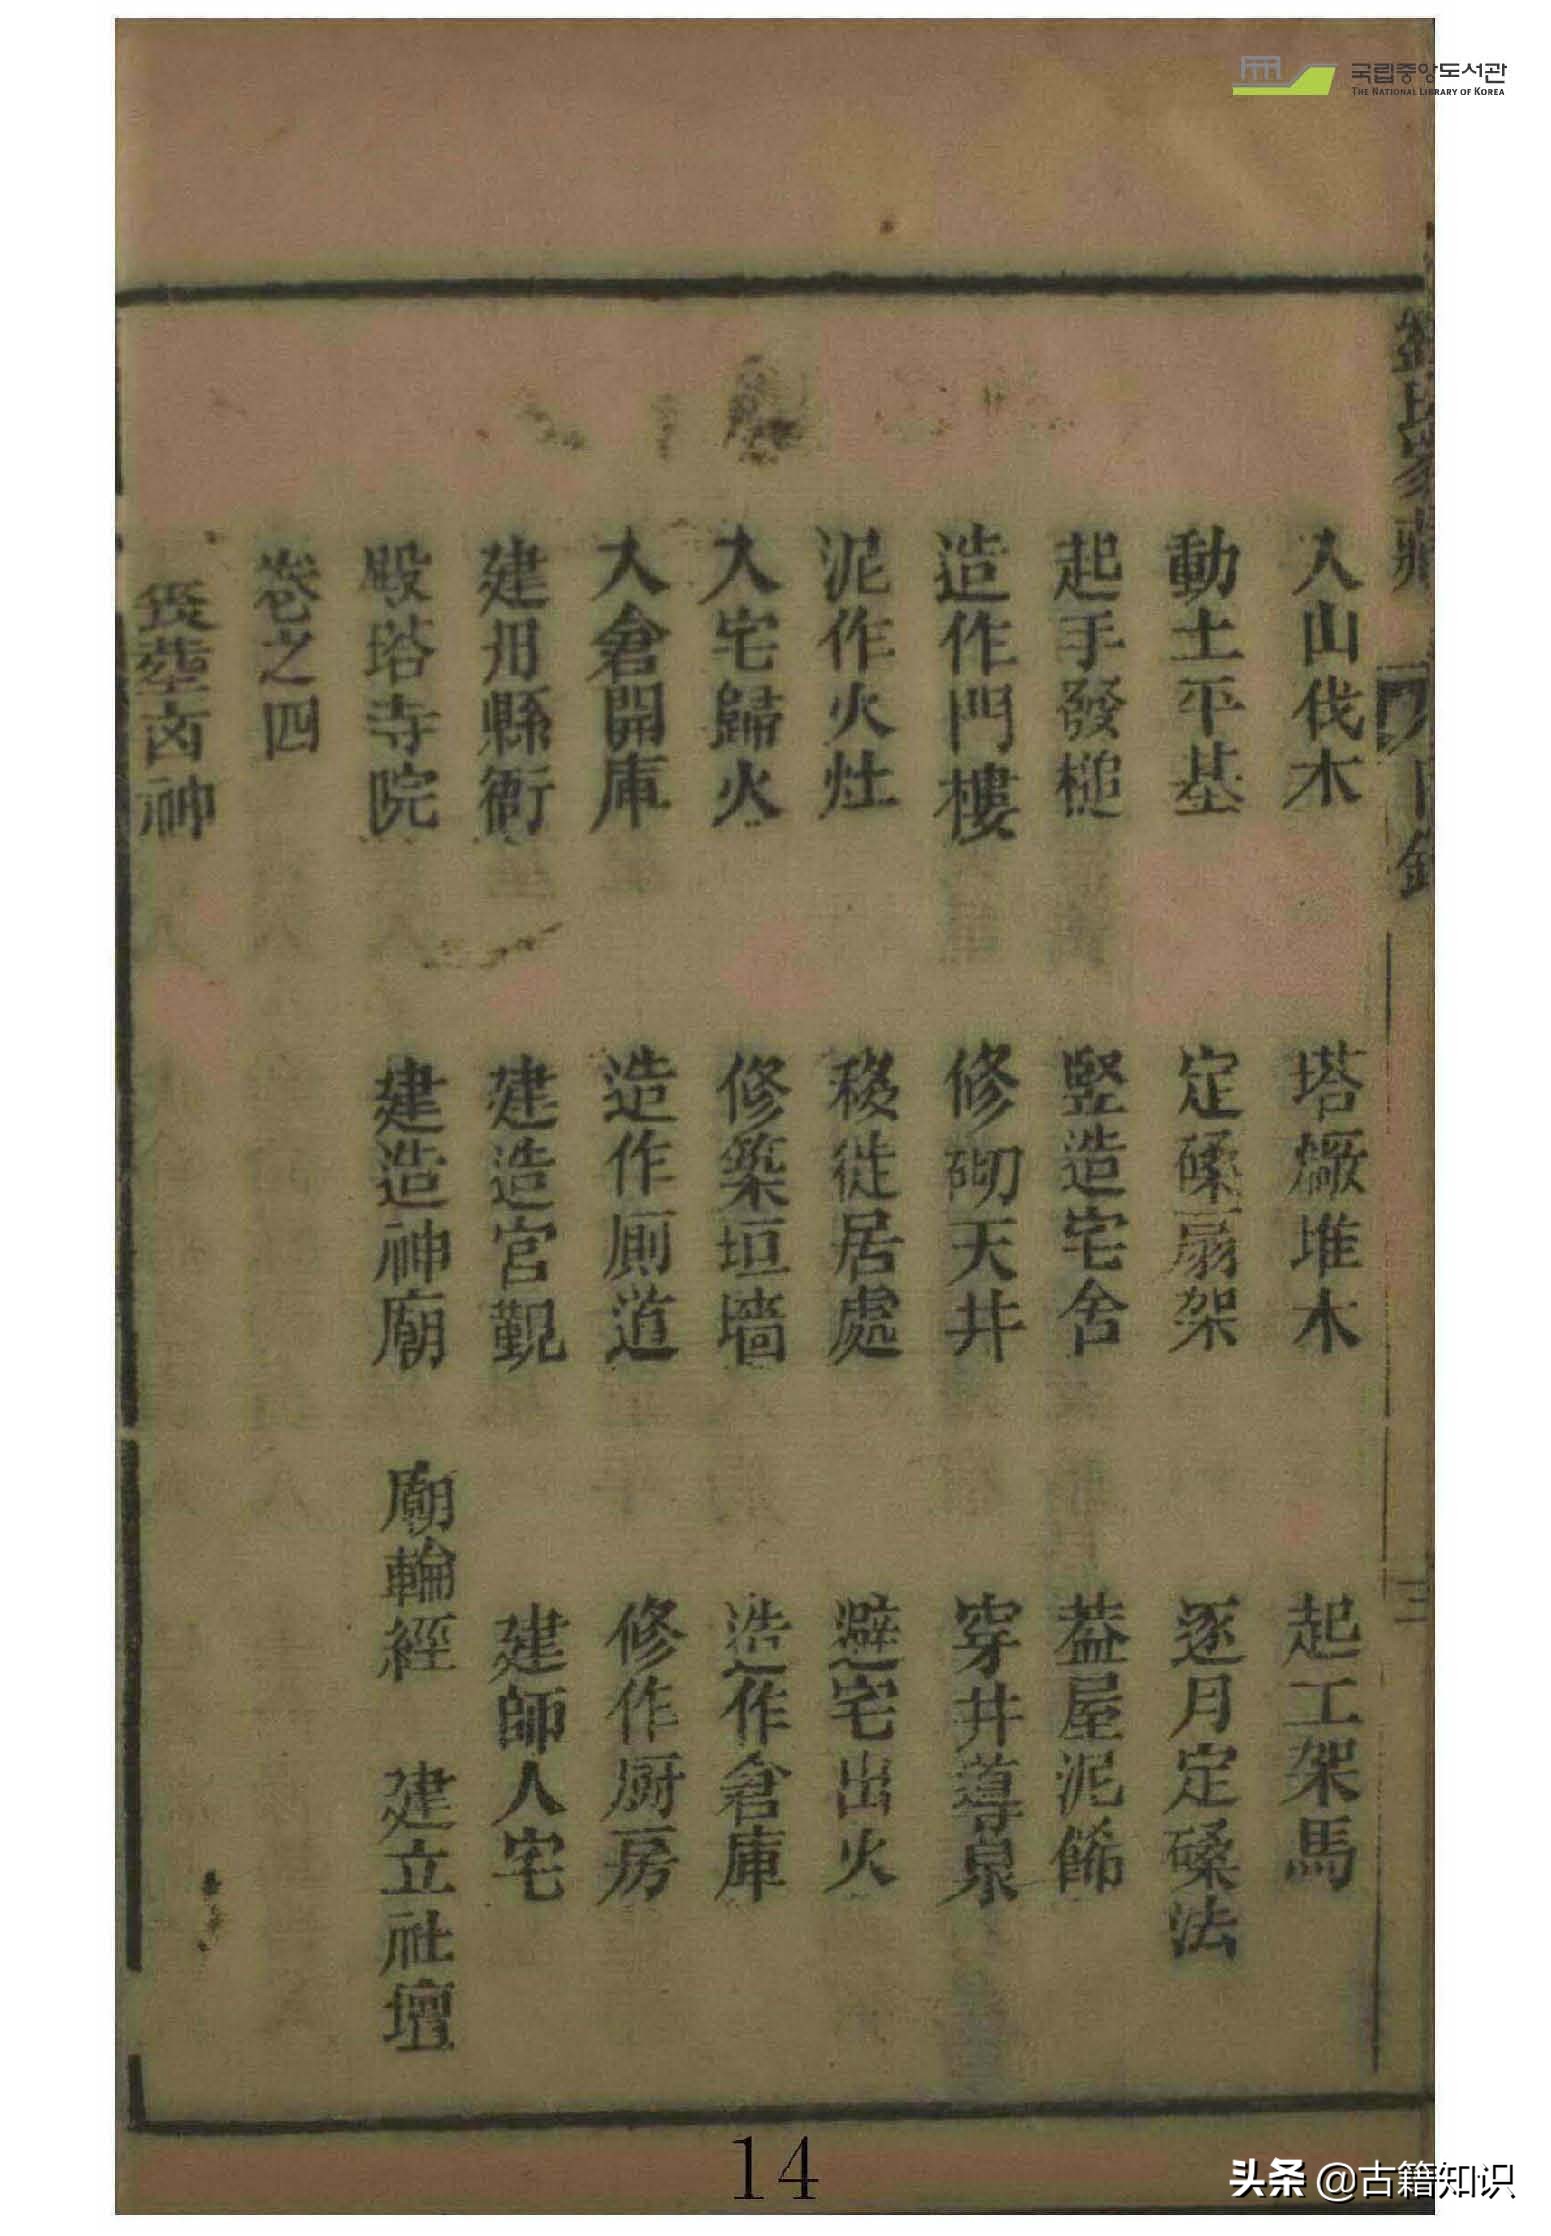 국립중앙도서관
THE NATIONAL LIBRARY OF KOREA
入山伐木 塔橛堆木 起工架馬
動土平基 定磉扇架 逐月定磉法
起手發槌 竪造宅舍 葢屋泥餙
造作門樓 修砌天井 穿井導泉
泥作火灶 移徙居處 避宅出火
入宅歸火 修築垣墻 造作倉庫
入倉開庫 造作厠道 修作厨房
建州縣衙 建造宫觀 建師人宅
殿塔寺院 建造神廟 廟輪經 建立社壇
卷之四
䘮塟凶神
14
头条 @古籍知识